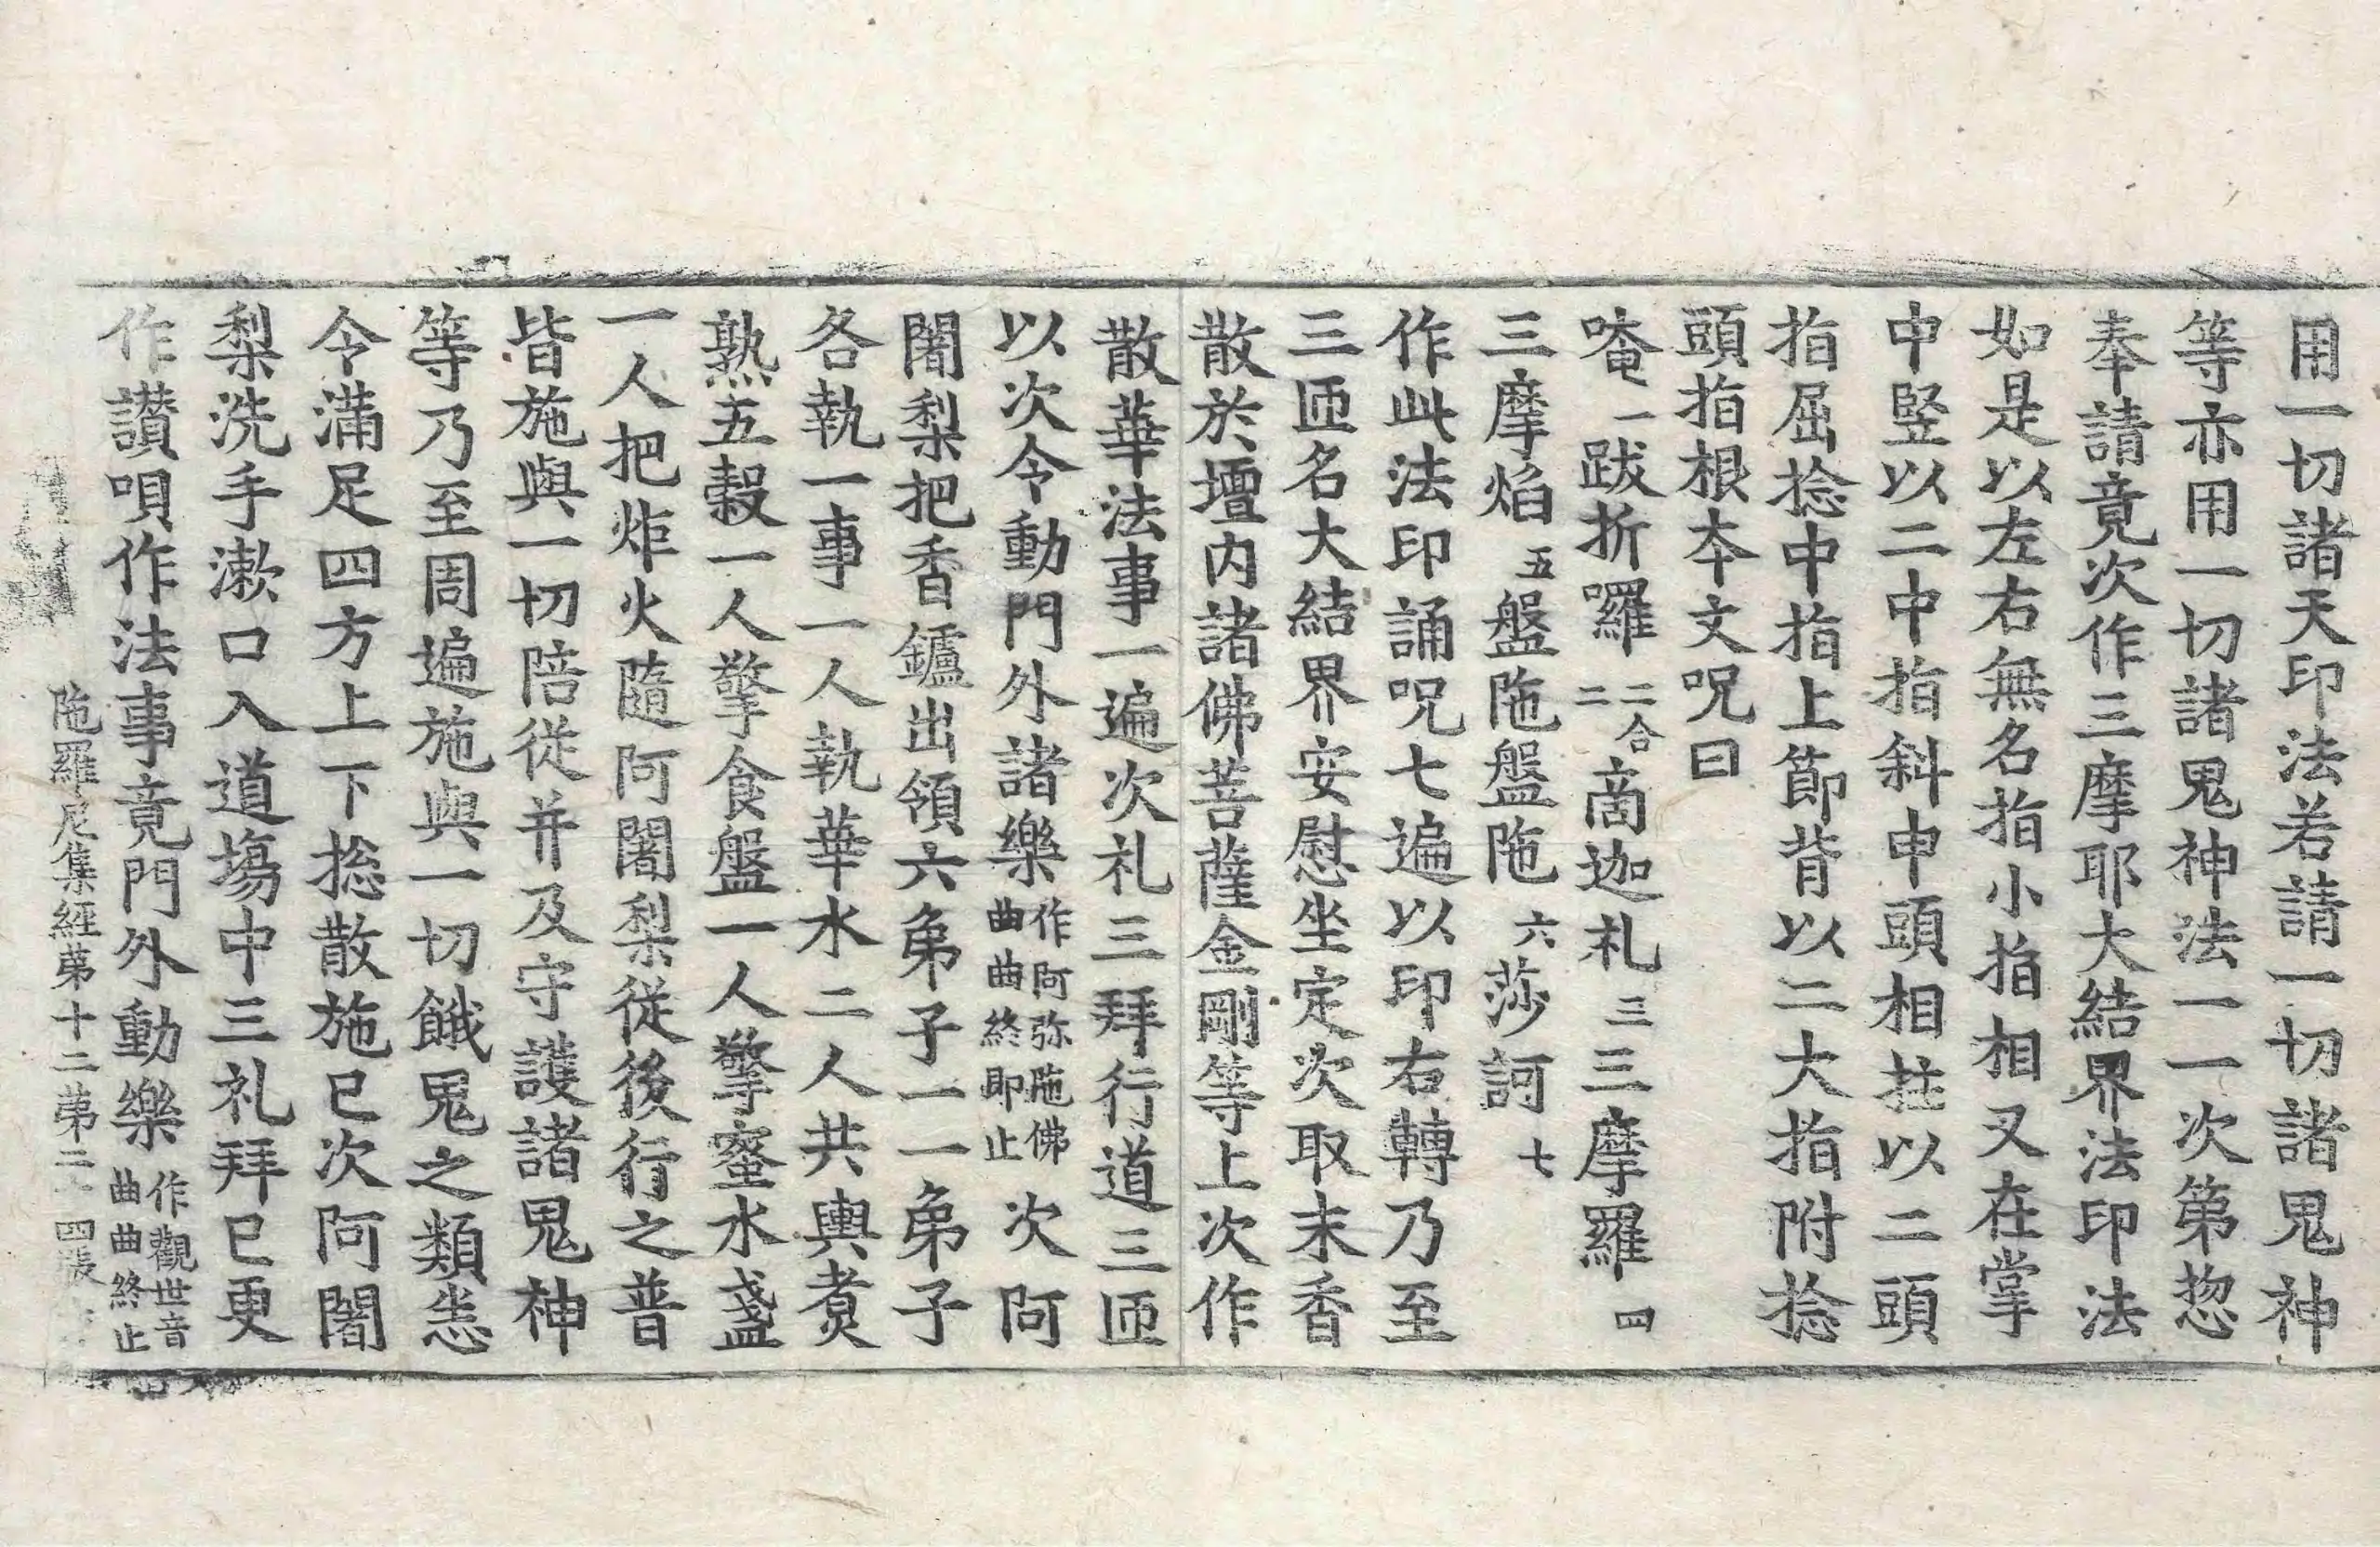 用一切諸天印法若請一切諸鬼神
等亦用一切諸鬼神法一一次第惣
奉請竟次作三摩耶大結界法印法
如是以左右無名指小指相叉在掌
中竪以二中指斜申頭相拄以二頭
指屈捻中指上節背以二大指附捻
頭指根本文呪曰
唵一跋折囉二合二商迦礼三三摩羅四
三摩焰五盤陁盤陁六莎訶七
作此法印誦呪七遍以印右轉乃至
三匝名大結界安慰坐定次取末香
散於壇内諸佛菩薩金剛等上次作
散華法事一遍次礼三拜行道三匝
以次令動門外諸樂作阿弥陁佛曲曲終即止次阿
闍梨把香鑪出領六弟子一一弟子
各執一事一人執華水二人共輿煑
熟五穀一人擎食盤一人擎蜜水盞
一人把炬火隨阿闍梨從後行之普
皆施與一切陪從并及守護諸鬼神
等乃至周遍施與一切餓鬼之類恙
令滿足四方上下捴散施已次阿闍
梨洗手漱口入道場中三礼拜已更
作讃唄作法事竟門外動樂作觀世音曲曲終止
陁羅尼集經第十二第二 四張